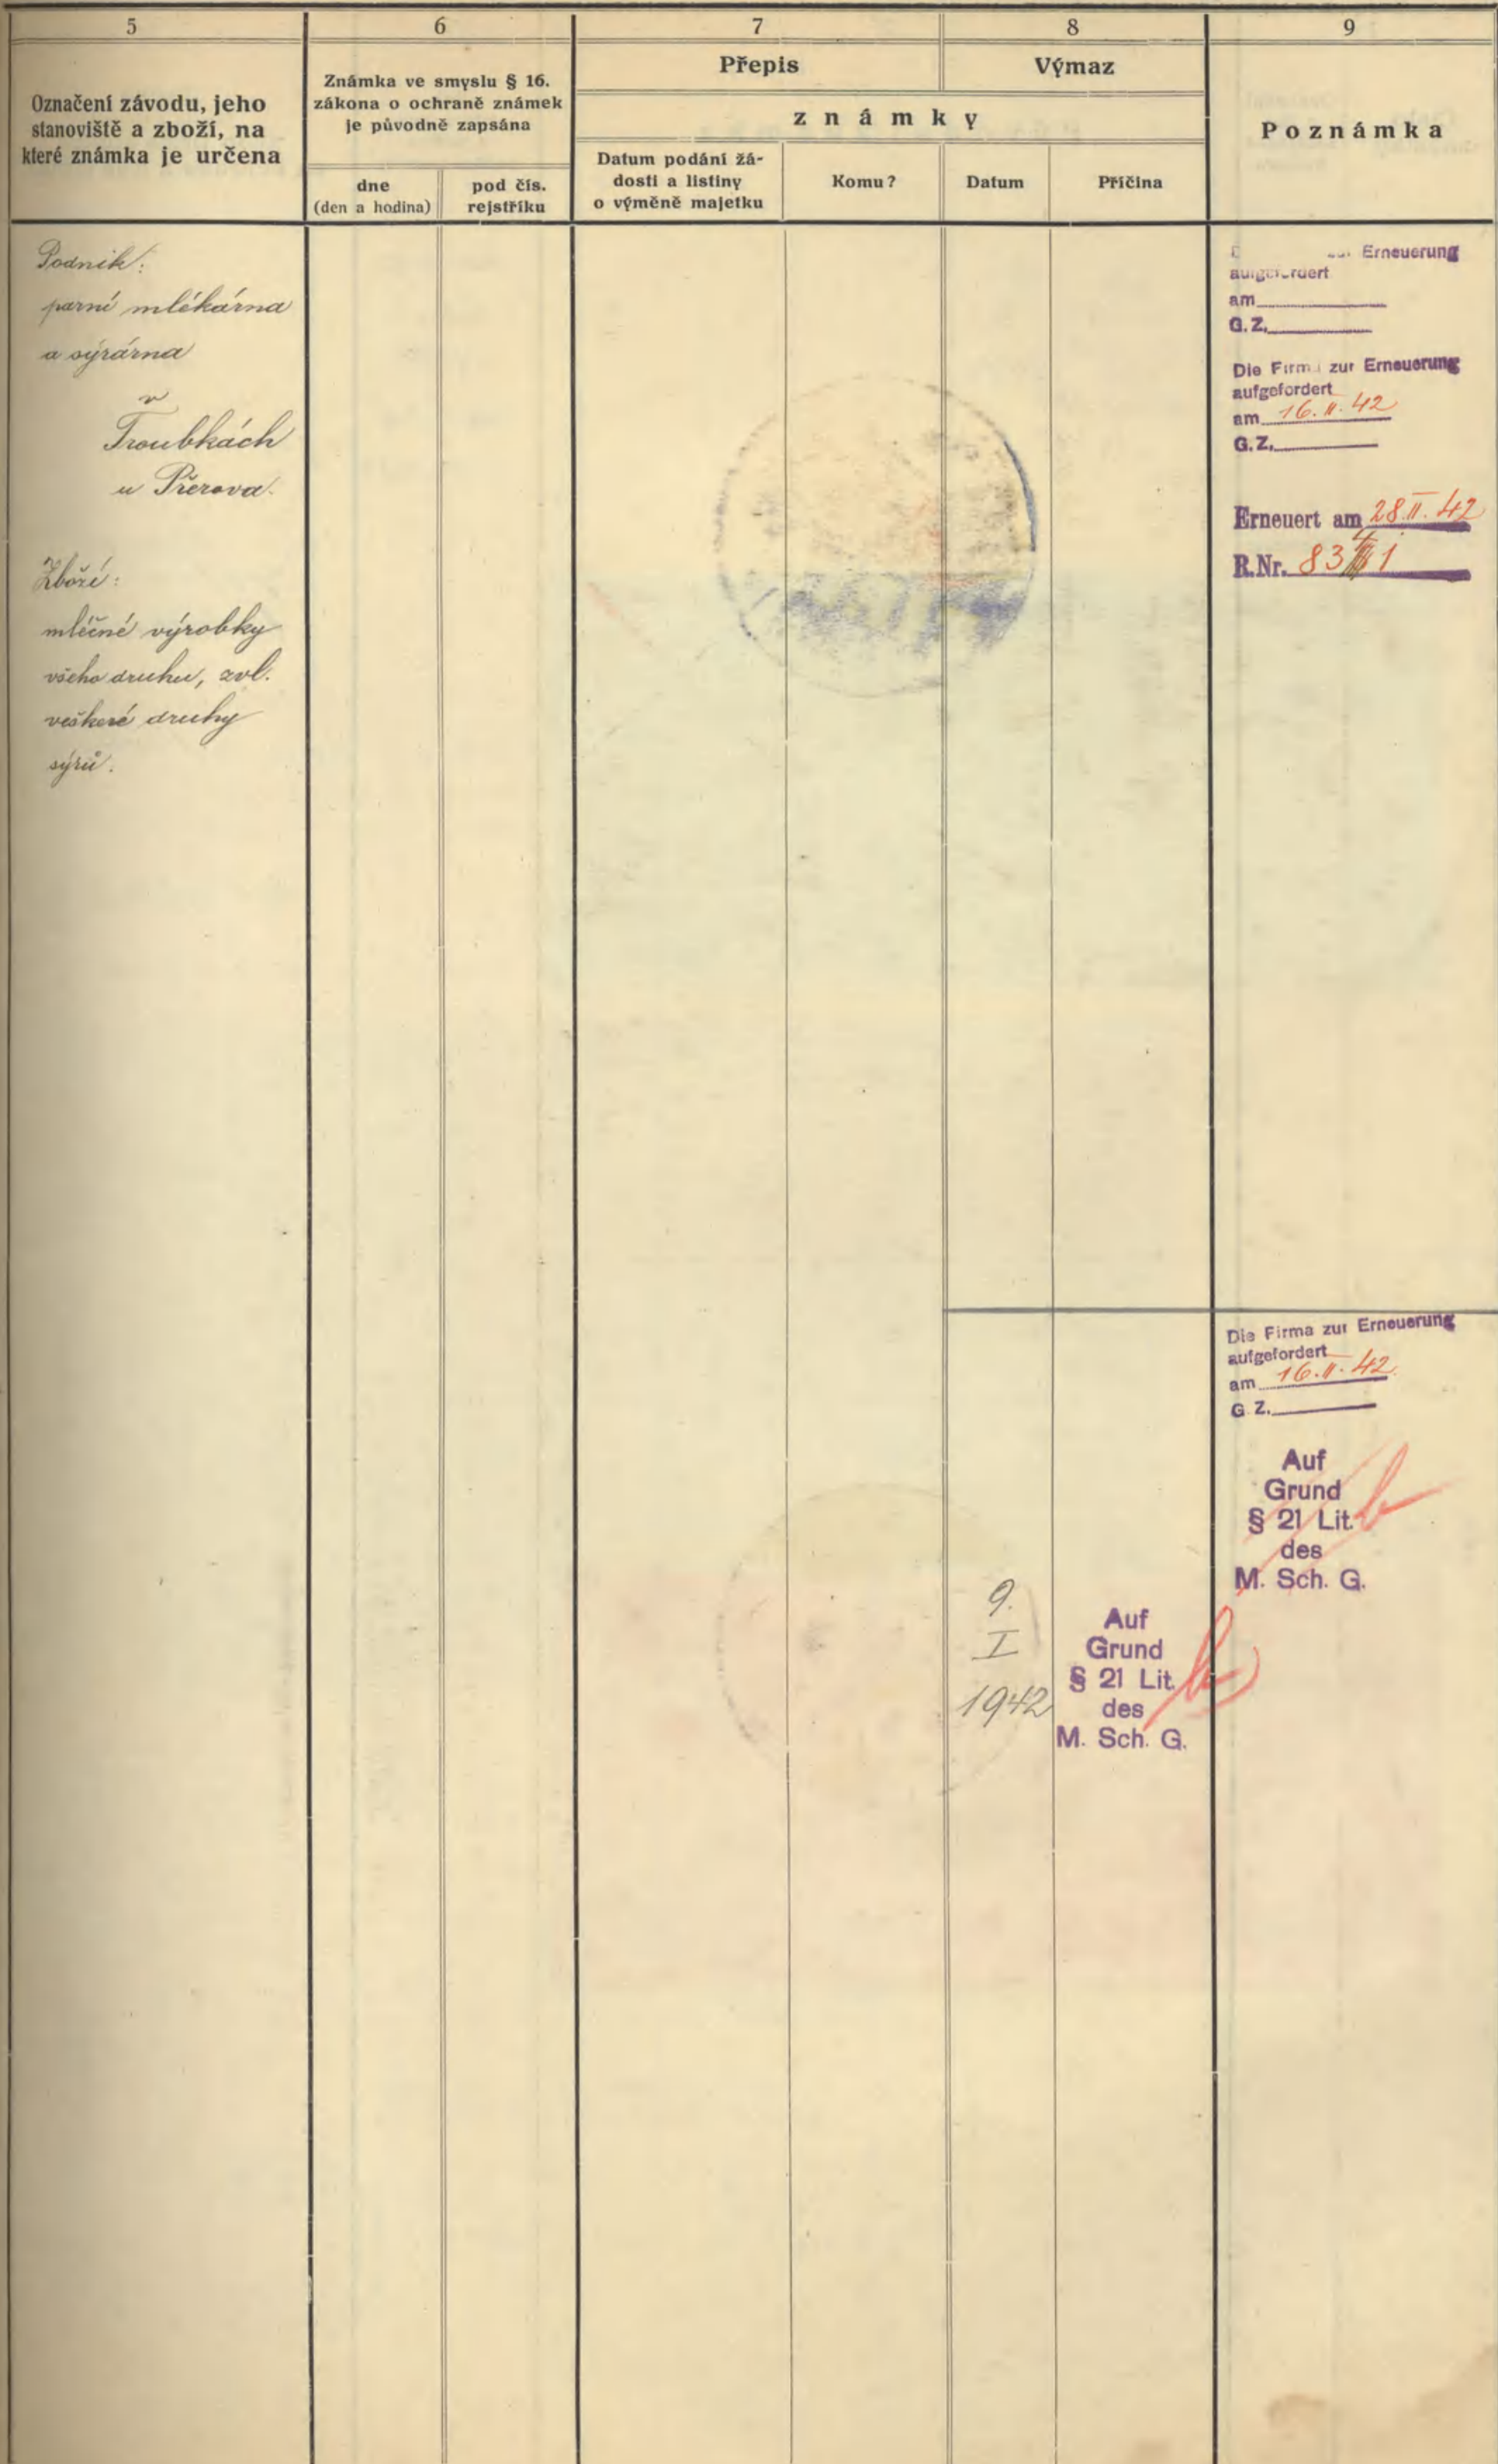 5
6
7
8
9
Označení závodu, jeho
stanoviště a zboží, na
které známka je určena
Známka ve smyslu § 16.
zákona o ochraně známek
je původně zapsána
dne
(den a hodina)
pod čís.
rejstříku
Přepis
Výmaz
známky
Datum podání žá-
dosti a listiny
o výměně majetku
Komu?
Datum
Příčina
Poznámka
Podnik:
parní mlékárna
a sýrárna
v
Troubkách
u Přerova.
Zboží:
mléčné výrobky
všeho druhu, zvl.
veškeré druhy
sýrů.
Erneuerung
aufgefordert
am
G.Z.
Die Firma zur Erneuerung
aufgefordert
am 16.II.42
G.Z.
Erneuert am 28.II.42
R.Nr. 83
Die Firma zur Erneuerung
aufgefordert
am 16.II.42
G.Z.
Auf
Grund
§ 21 Lit. b
des
M. Sch. G.
9.
I
1942
Auf
Grund
§ 21 Lit. b
des
M. Sch. G.